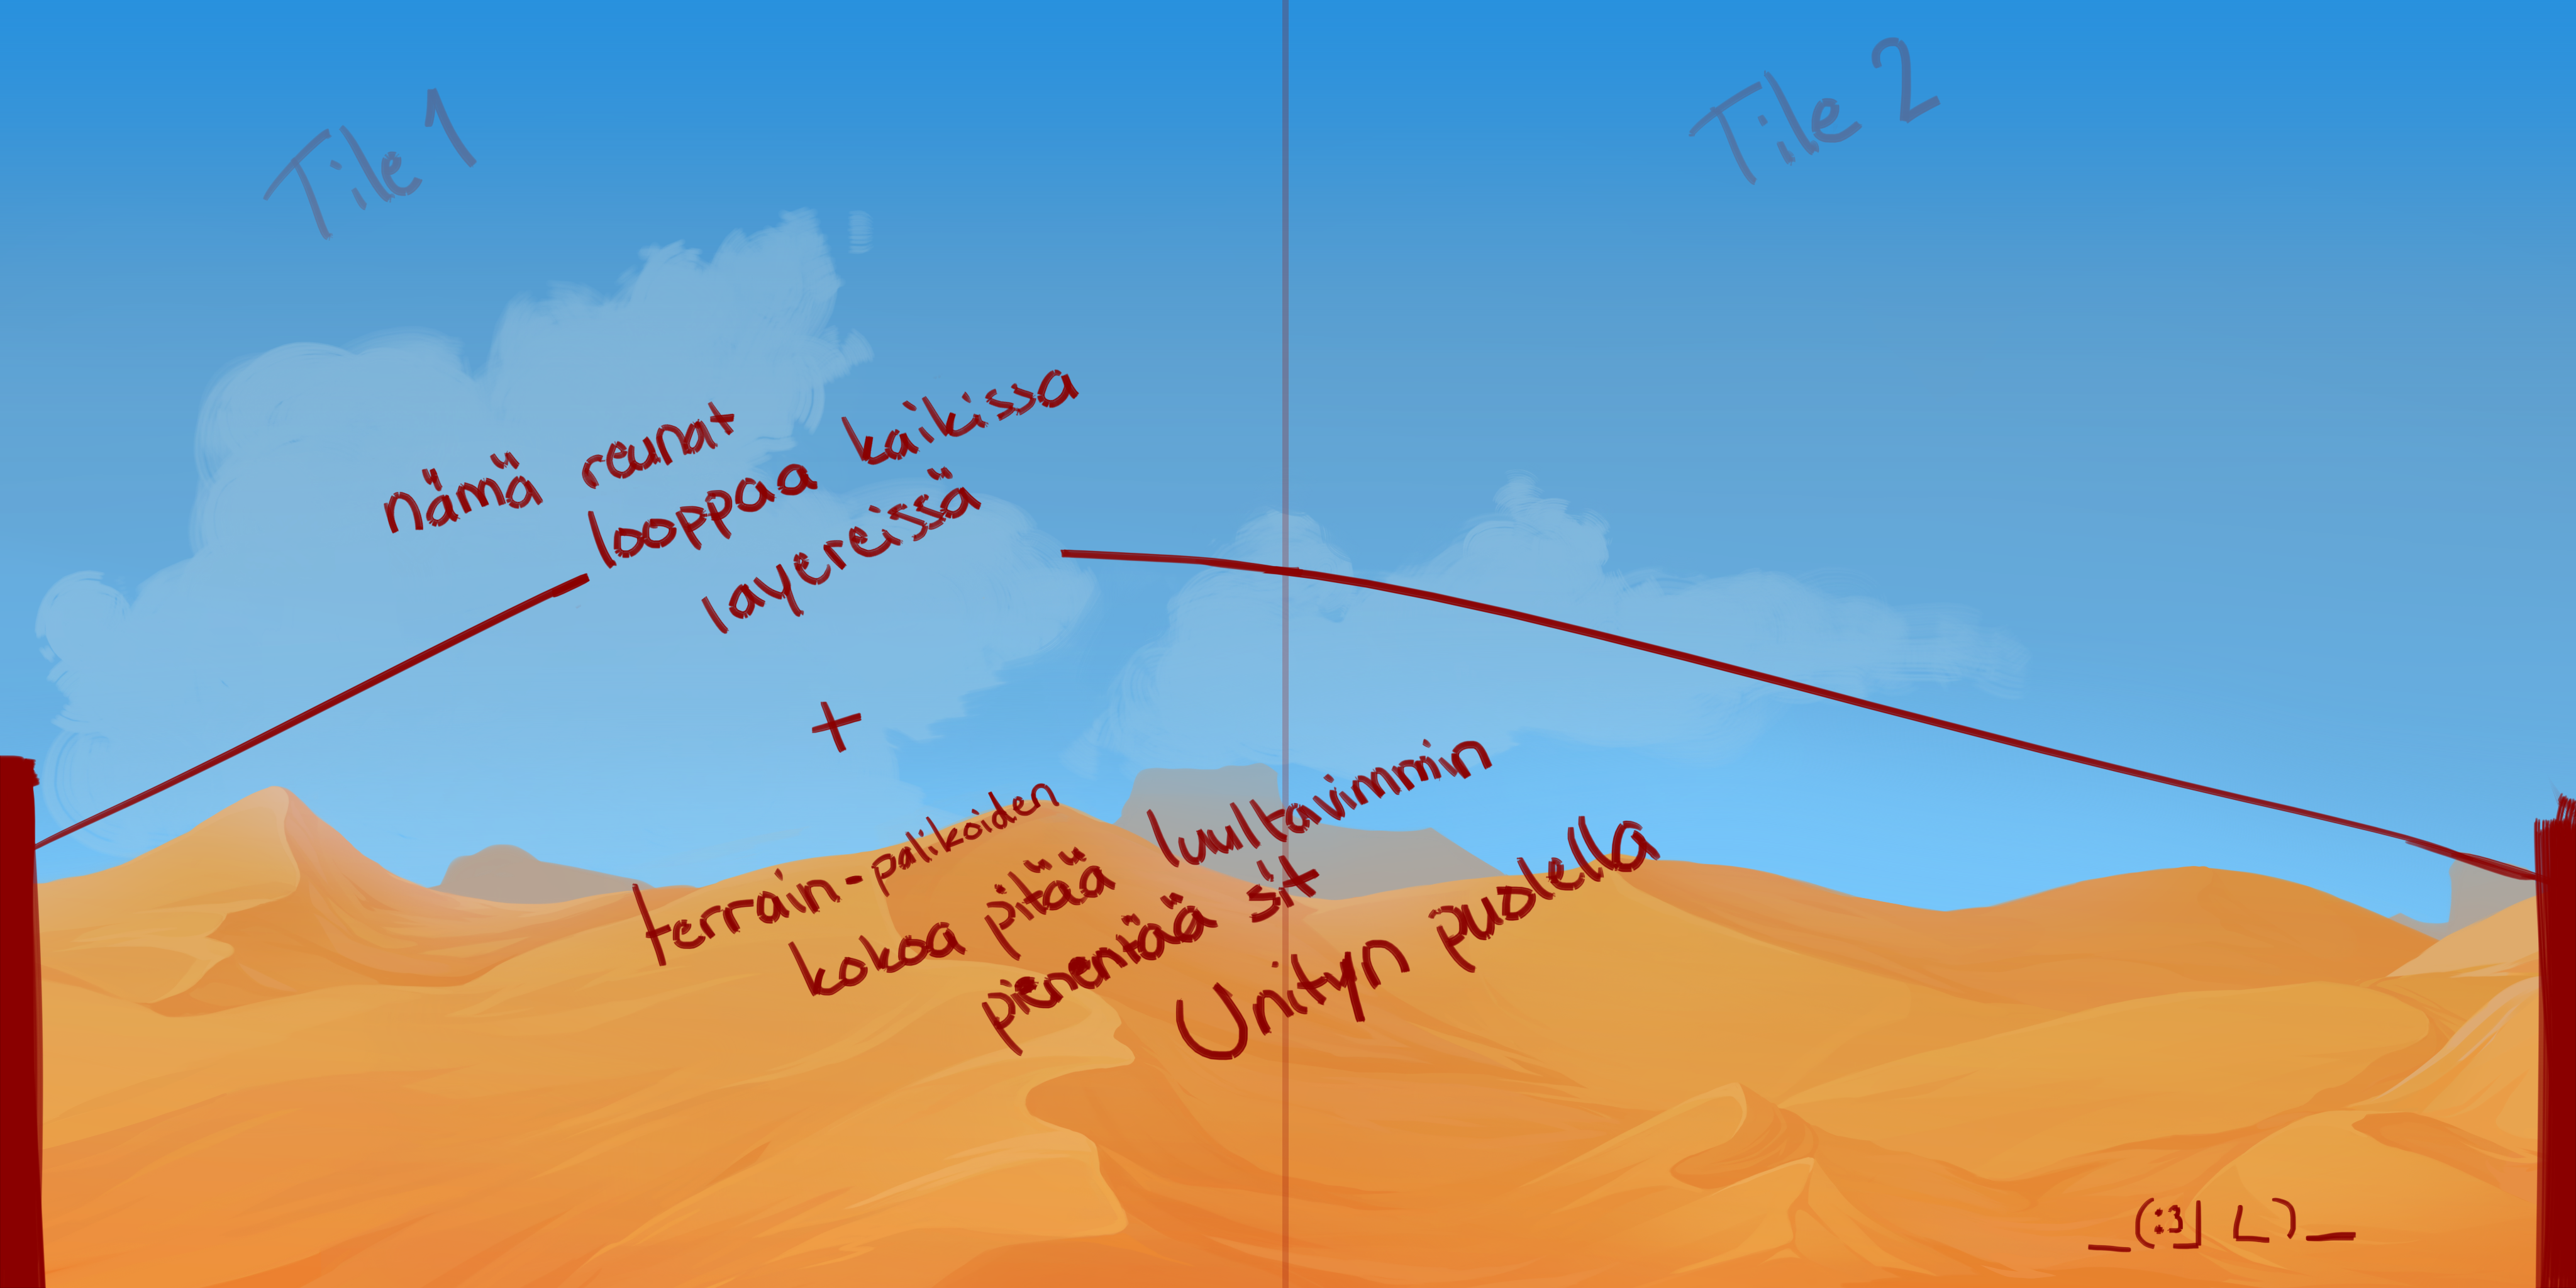 Tile 1
Tile 2
nämä reunat
looppaa kaikissa
layereissä
+
terrain-palikoiden
kokoa pitää luultavimmin
pienentää sit
Unityn puolella
_(:3」∠)_